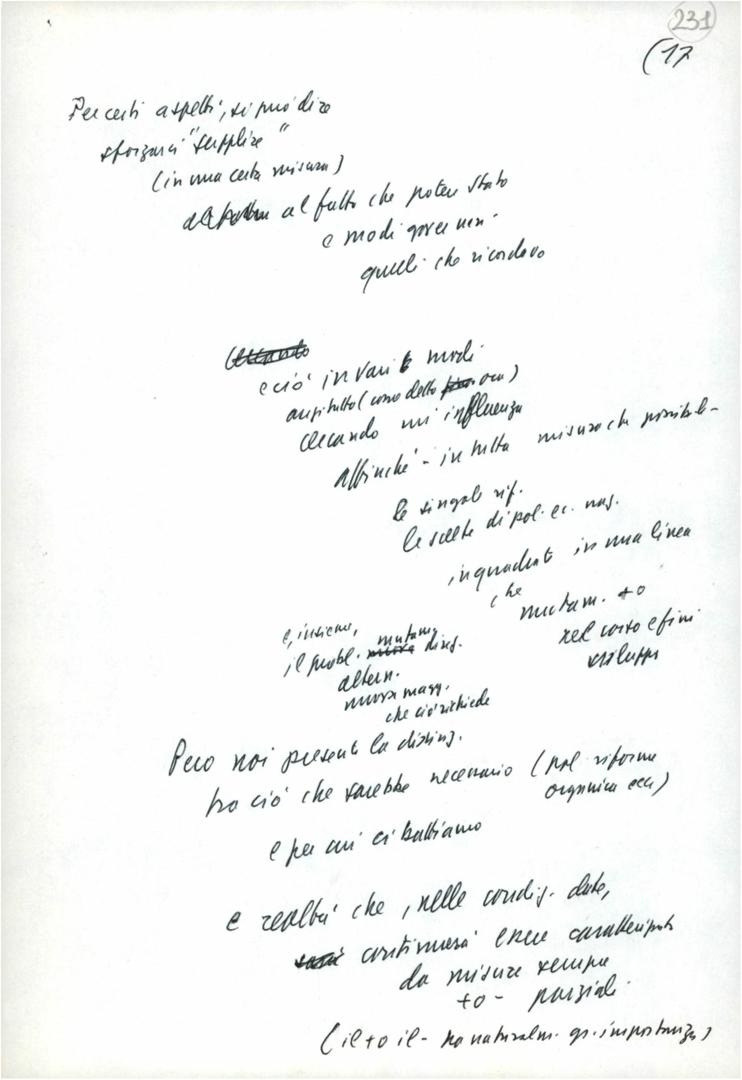 231
(17
Per certi aspetti, si può dire
sforzarci "supplire"
(in una certa misura)
al fatto che potere Stato
e modi governi
quelli che ricordavo
cercando
e ciò in vari modi
anzitutto (come detto ora)
cercando influenza
affinché - in tutta misura che possibil-
le singole rif.
le scelte di pol. ec. naz.
inquadrati in una linea
che mutam. +o
nel corso e fini
sviluppi
e, insieme,
il probl. mutam. direz.
altern.
nuova magg.
che ciò richiede
Però noi presenti la disting.
tra ciò che sarebbe necessario (pol riforme
organica ecc)
e per cui ci battiamo
e realtà che, nelle condiz. date,
continuerà essere caratterizzata
da misure sempre
+ o - parziali
(il + o il - ha naturalm. gr. importanza)